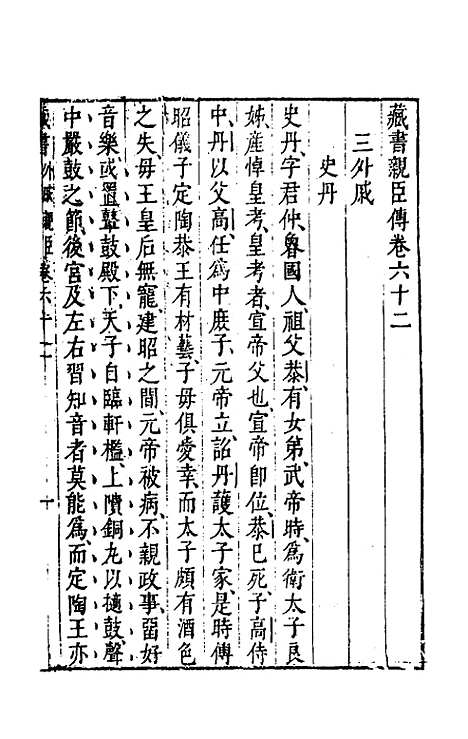 藏書親臣傳卷六十二
三外戚
史丹
史丹、字君仲、魯國人、祖父恭、有女弟、武帝時、爲衛太子良
娣、產悼皇考、皇考者、宣帝父也、宣帝卽位、恭已死、子高侍
中、丹以父高任爲中庶子、元帝立、詔丹護太子家、是時傅
昭儀子定陶恭王有材藝、子毋俱愛幸、而太子頗有酒色
之失、毋王皇后無寵、建昭之間、元帝被病、不親政事、畱好
音樂、或置鼙鼓殿下、天子自臨軒檻上、隤銅丸以擿鼓、聲
中嚴鼓之節、後宮及左右習知音者莫能爲、而定陶王亦
藏書 外戚親臣卷六十二 一